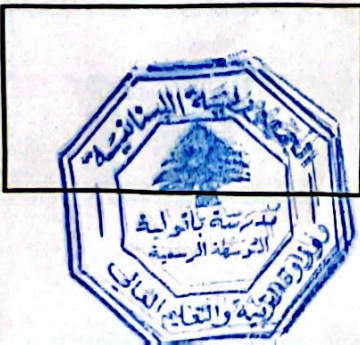 الجمهورية اللبنانية
مدرسة باتوليه
المتوسطة الرسمية
وزارة التربية والتعليم العالي